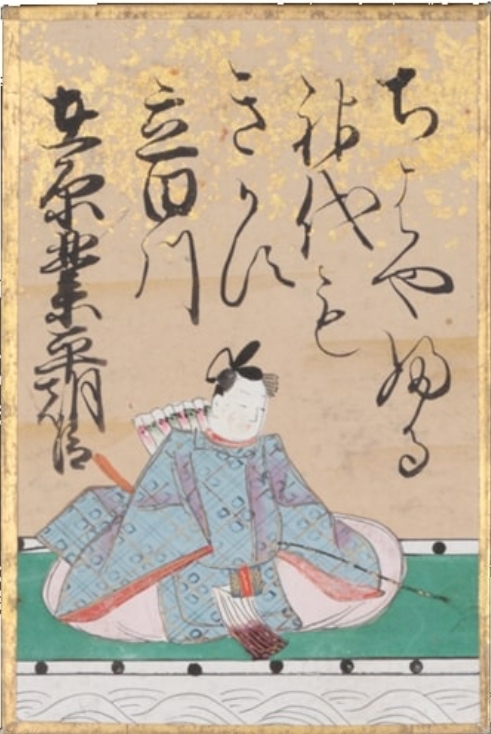 ちはやふる
神代も
きかす
立田川
在原業平朝臣